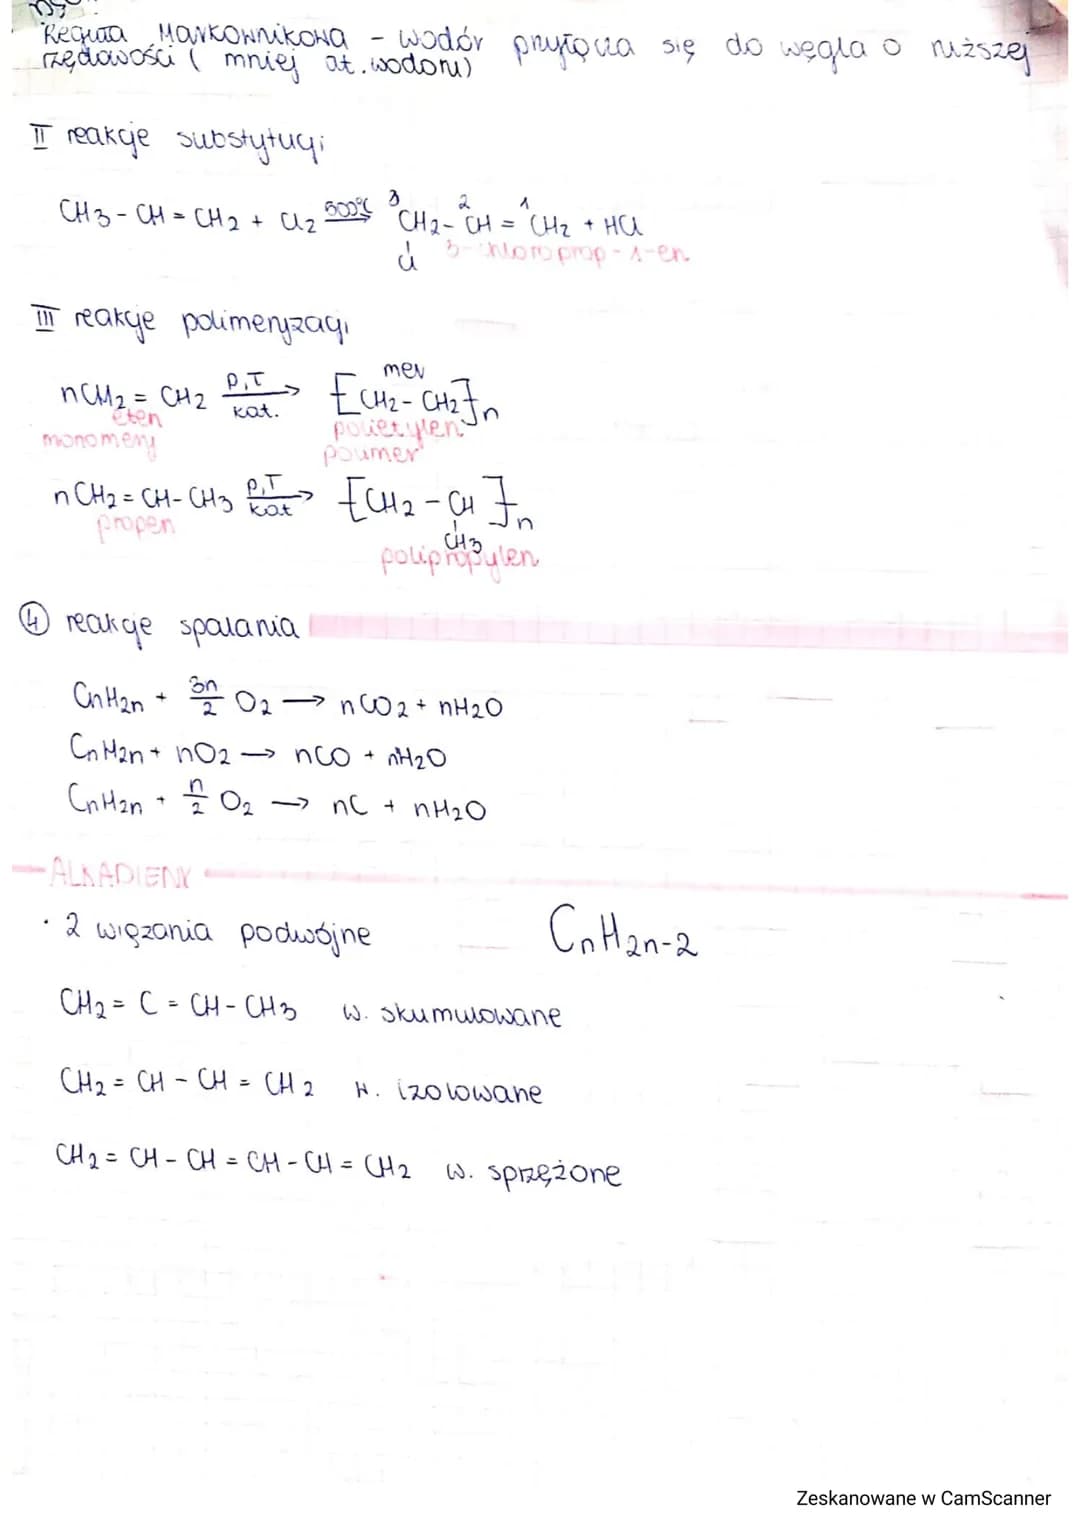 Reguła Markownikowa - wodór przyłącza się do węgla o niższej
rzędowości ( mniej at. wodoru)
II reakcje substytucji
CH3 - CH = CH2 + Cl2 500°C 3CH2 - 2CH = 1CH2 + HCl
Cl 3-chloroprop-1-en
III reakcje polimeryzacji
mer
nCH2 = CH2 p,T kat. → [CH2 - CH2]n
eten polietylen
monomery polimer
nCH2 = CH - CH3 p,T kat → [CH2 - CH]n
propen CH3
polipropylen
④ reakcje spalania
CnH2n + 3n/2 O2 → nCO2 + nH2O
CnH2n + nO2 → nCO + nH2O
CnH2n + n/2 O2 → nC + nH2O
ALKADIENY
· 2 wiązania podwójne CnH2n-2
CH2 = C = CH - CH3 w. skumulowane
CH2 = CH - CH = CH2 w. izolowane
CH2 = CH - CH = CH - CH = CH2 w. sprzężone
Zeskanowane w CamScanner